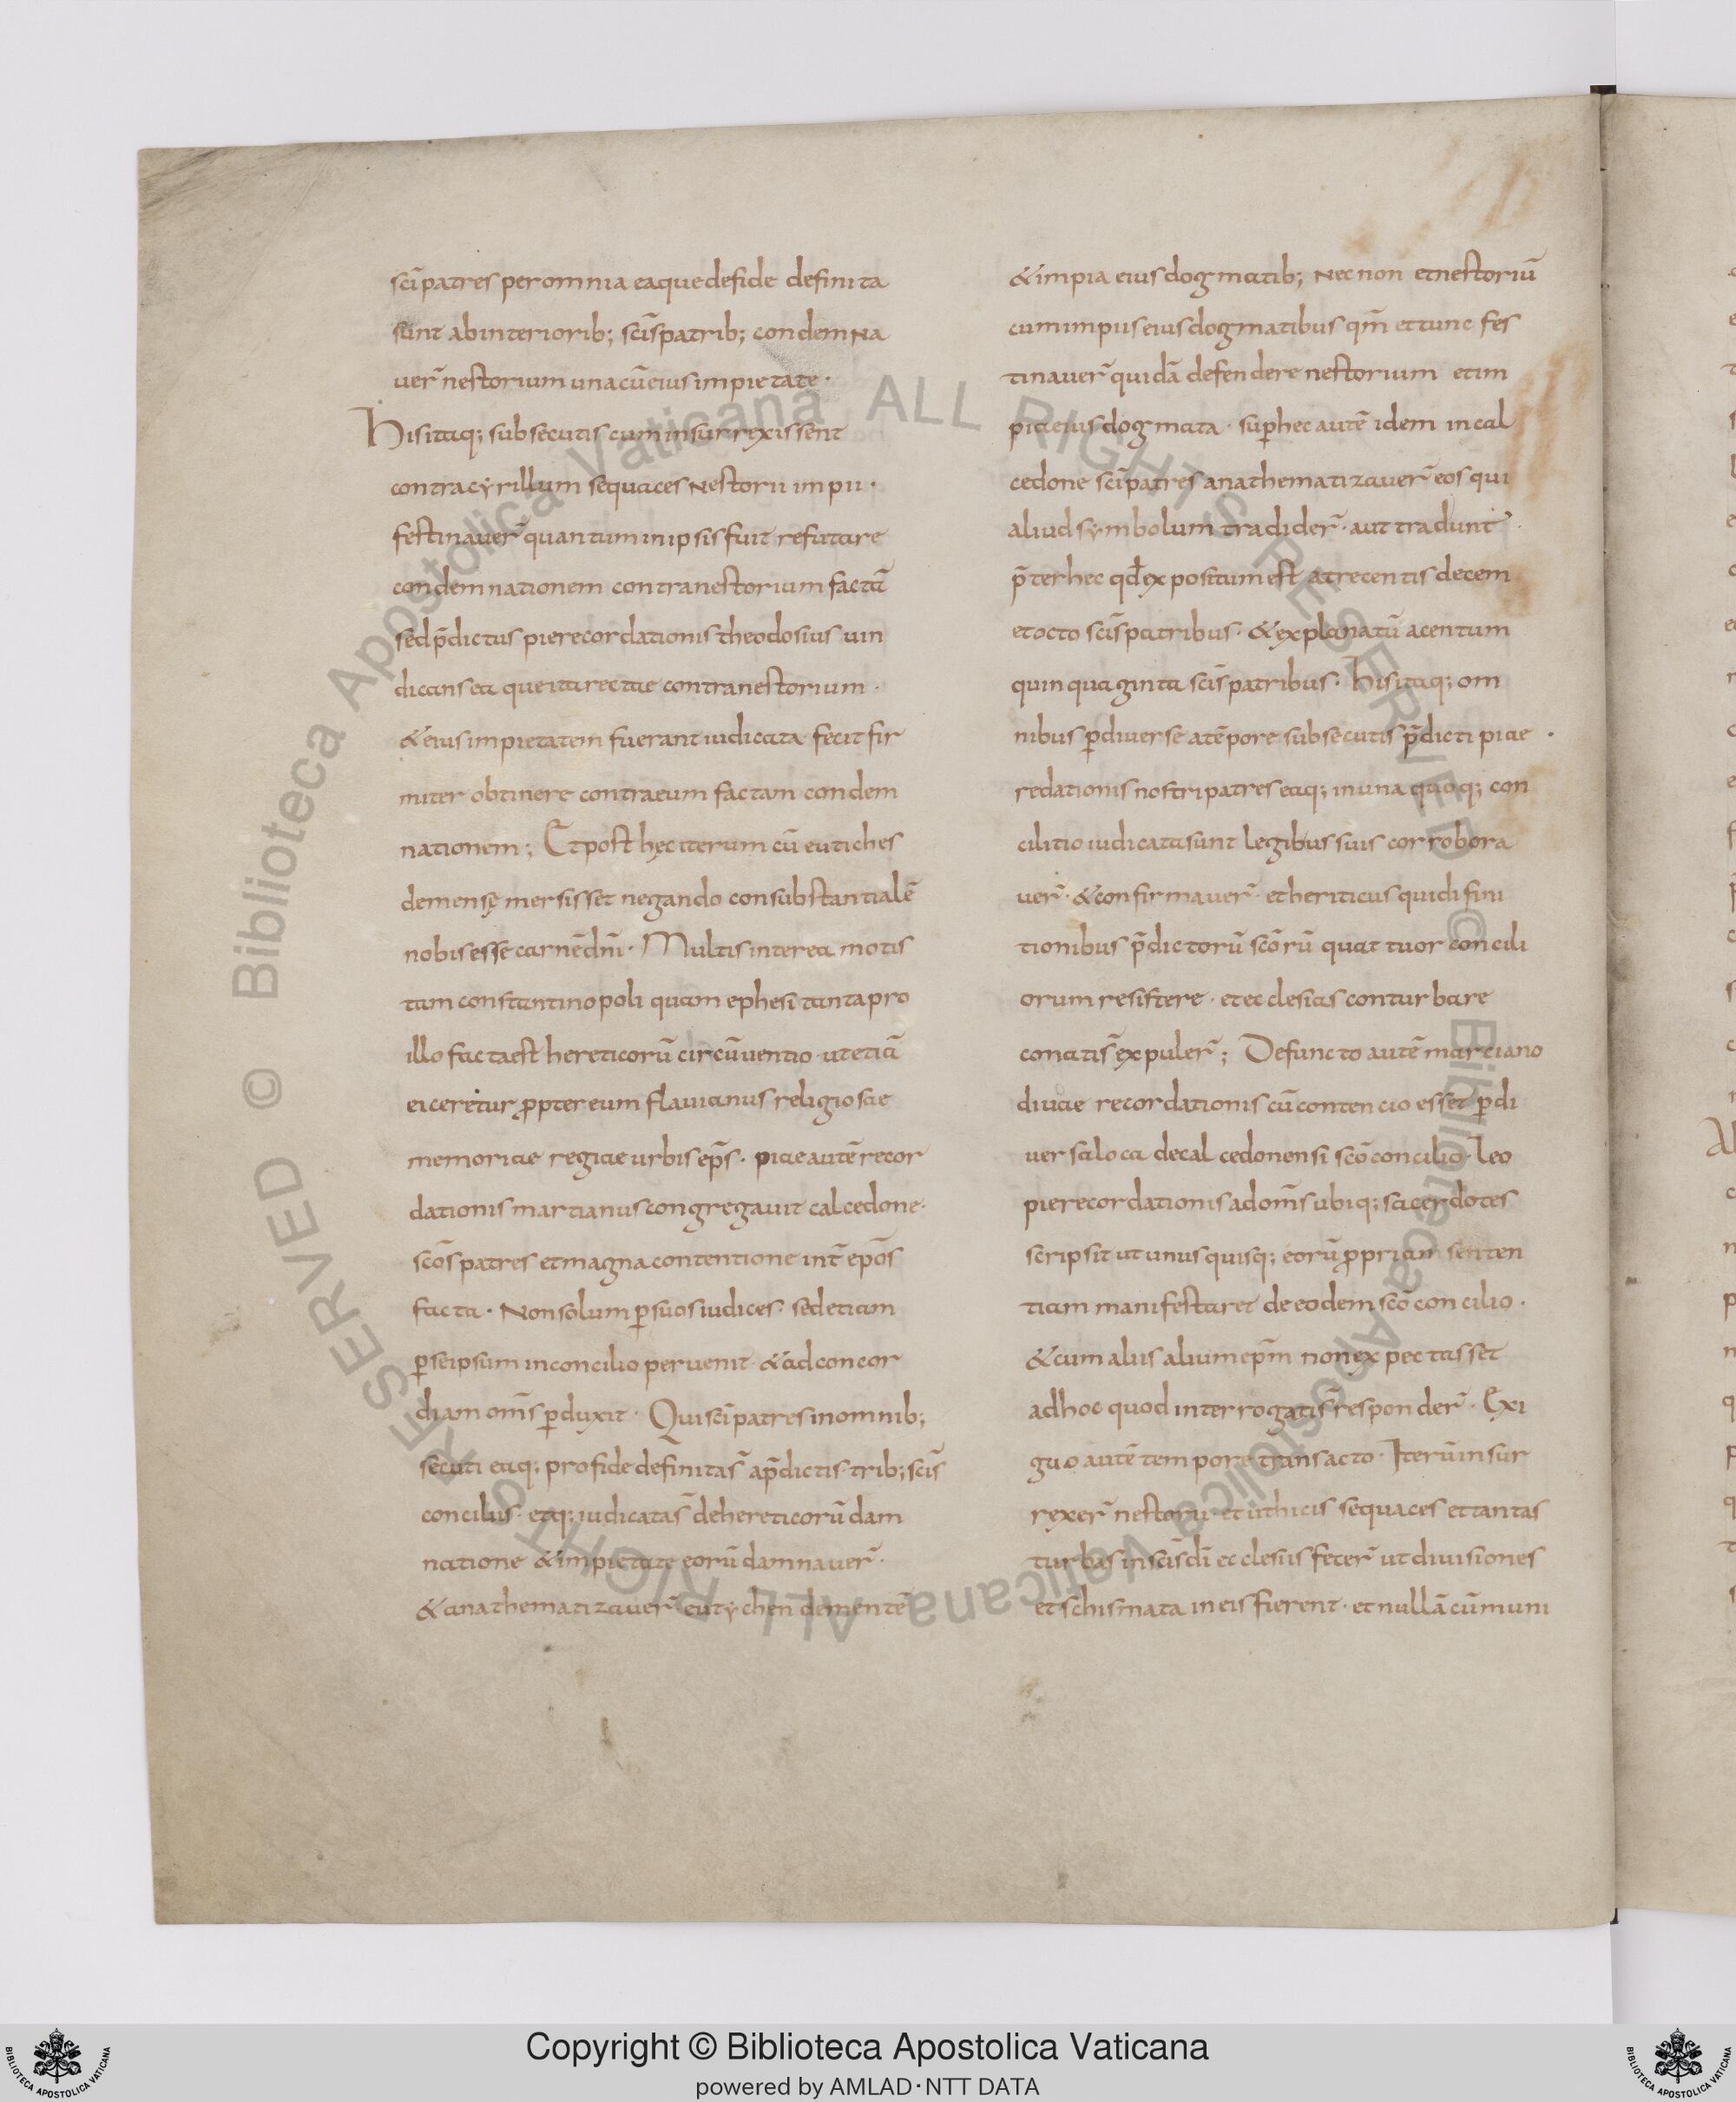 scı̄ patres per omnia eaque de fide definita
sunt ab interiorib; scı̄s patrib; condemna
uer̄ nestorium una cū eius impietate ·
His itaq; subsecutis cum insurrexissent
contra cyrillum sequaces Nestorii impii ·
festinauer̄ quantum in ipsis fuit refutare
condemnationem contra nestorium factā
sed p̄dictus pie recordationis theodosius uin
dicans ea que ita rectae contra nestorium ·
& eius impietatem fuerant iudicata fecit fir
miter obtinere contra eum factam condem
nationem; Et post hęc iterum cū eutiches
demensę mersisset negando consubstantialē
nobis esse carnē dn̄i · Multis interea motis
tam constantinopoli quam ephesi tanta pro
illo facta est hereticorū circūuentio ut etiā
eiceretur ꝓpter eum flauianus religiosae
memoriae regiae urbis ep̄s · piae autē recor
dationis martianus congregauit calcedone ·
scōs patres et magna contentione int̄ ep̄os
facta · Non solum ꝑ suos iudices · sed etiam
ꝑ seipsum in concilio peruenit · & ad concor
diam om̄s ꝑduxit · Qui scı̄ patres in omnib;
secuti eaq; pro fide definita s̄ a p̄dictis trib; scı̄s
conciliis · etq; iudicata s̄ de hereticorū dam
natione & impietate eorū damnauer̄ ·
& anathematizauer̄ eutychen dementē
& impia eius dogmatib; Nec non et nestoriū
cum impiis eius dogmatibus qm̄ et tunc fes
tinauer̄ quidā defendere nestorium et im
pia eius dogmata · suꝑ hec autē idem in cal
cedone scı̄ patres anathematizauer̄ eos qui
aliud symbolum tradider̄ · aut tradunt ·
p̄ter hec qđ expositum est a trecentis decem
et octo scı̄s patribus · & explanatū a centum
quinquaginta scı̄s patribus · his itaq; om
nibus ꝑ diuerse a tēpore subsecutis p̄dicti piae ·
redationis nostri patres eaq; in una quoq; con
cilitio iudicata sunt legibus suis corrobora
uer̄ · & confirmauer̄ · et heriticus qui difini
tionibus p̄dictorū scōrū quattuor concili
orum resistere · et ecclesias conturbare
conati s̄ expuler̄; Defuncto autē marciano
diuae recordationis cū contencio esset ꝑ di
uersa loca de calcedonensi scō concilio · Leo
pie recordationis ad om̄s ubiq; sacerdotes
scripsit ut unusquisq; eorū ꝓpriam senten
tiam manifestaret de eodem scō concilio ·
& cum alius alium ep̄m non expectasset
ad hoc quod interrogati s̄ responder̄ · Exi
guo autē tempore transacto · Iterū insur
rexer̄ nestorii et uthicis sequaces et tantas
turbas in scı̄s dı̄ ecclesiis fecer̄ ut diuisiones
et schismata in eis fierent · et nullā cūmuni
Biblioteca Apostolica Vaticana ALL RIGHTS RESERVED ©
Copyright © Biblioteca Apostolica Vaticana
powered by AMLAD·NTT DATA
BIBLIOTECA APOSTOLICA VATICANA
BIBLIOTECA APOSTOLICA VATICANA